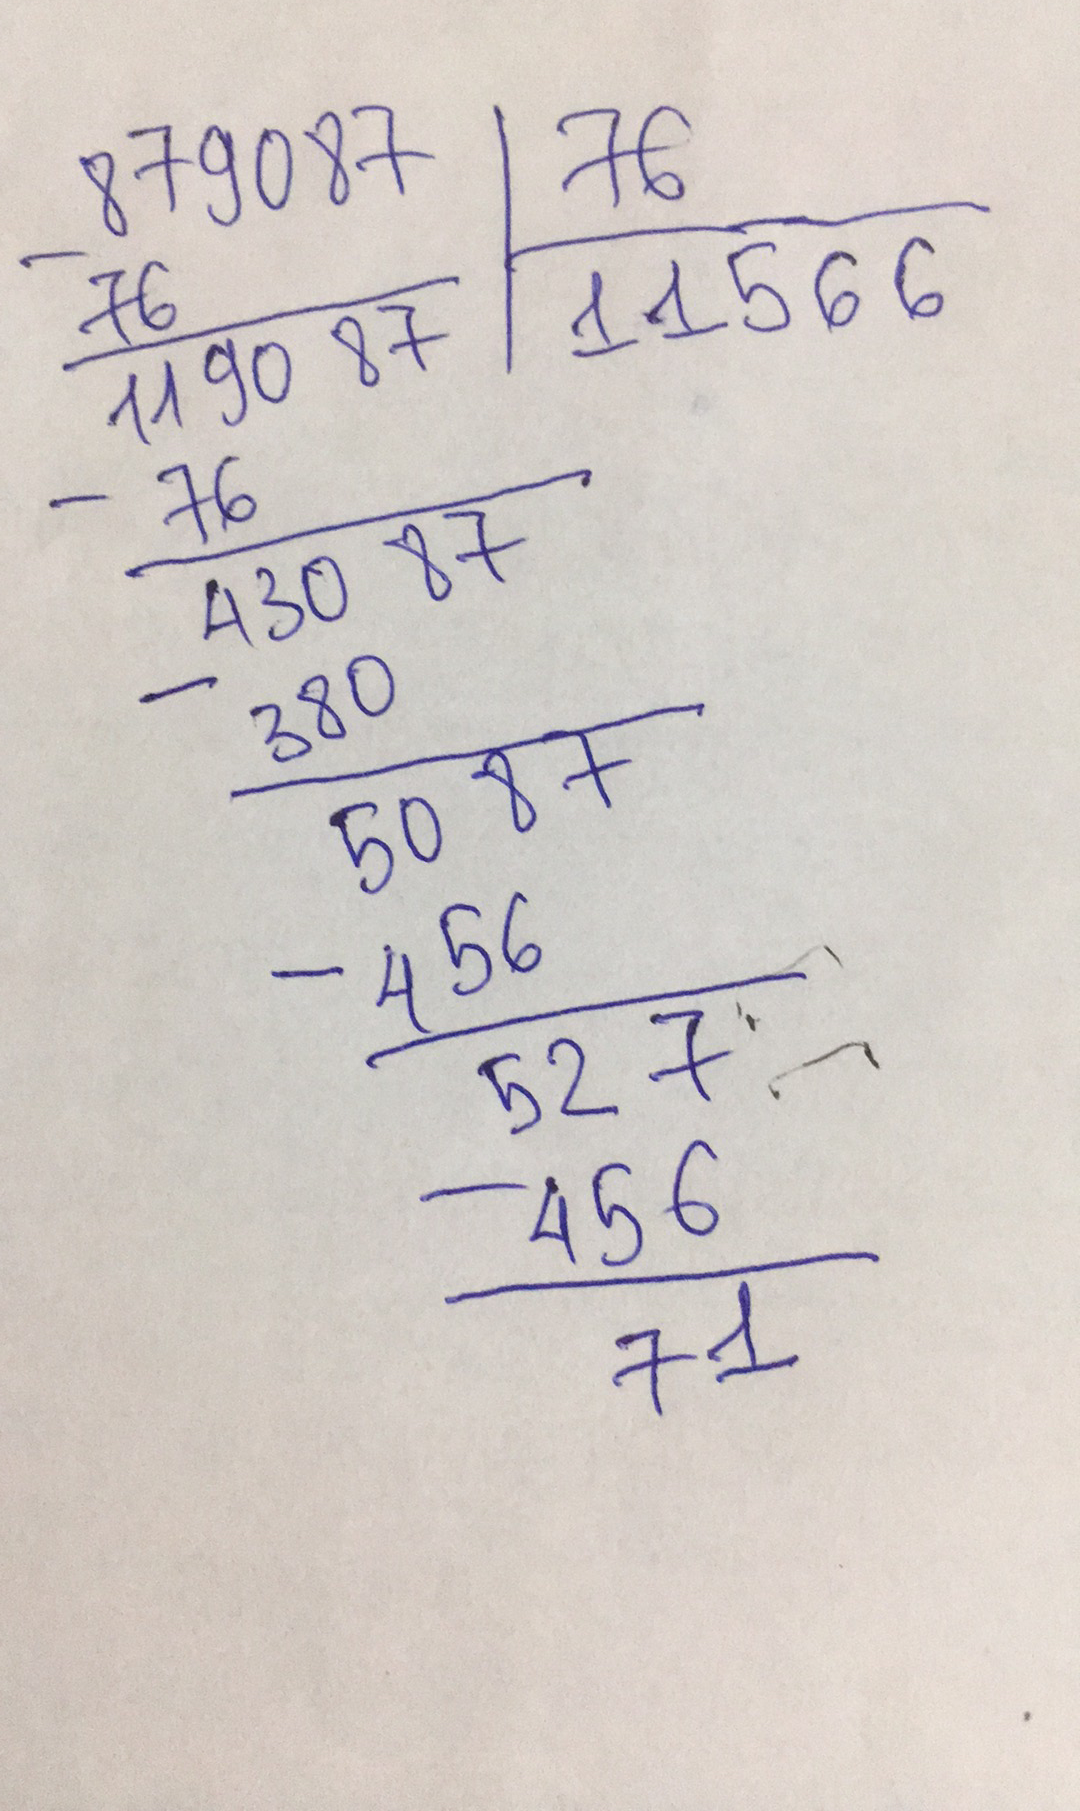 879087 | 76
- 76
11566
119087
- 76
43087
- 380
5087
- 456
527
- 456
71